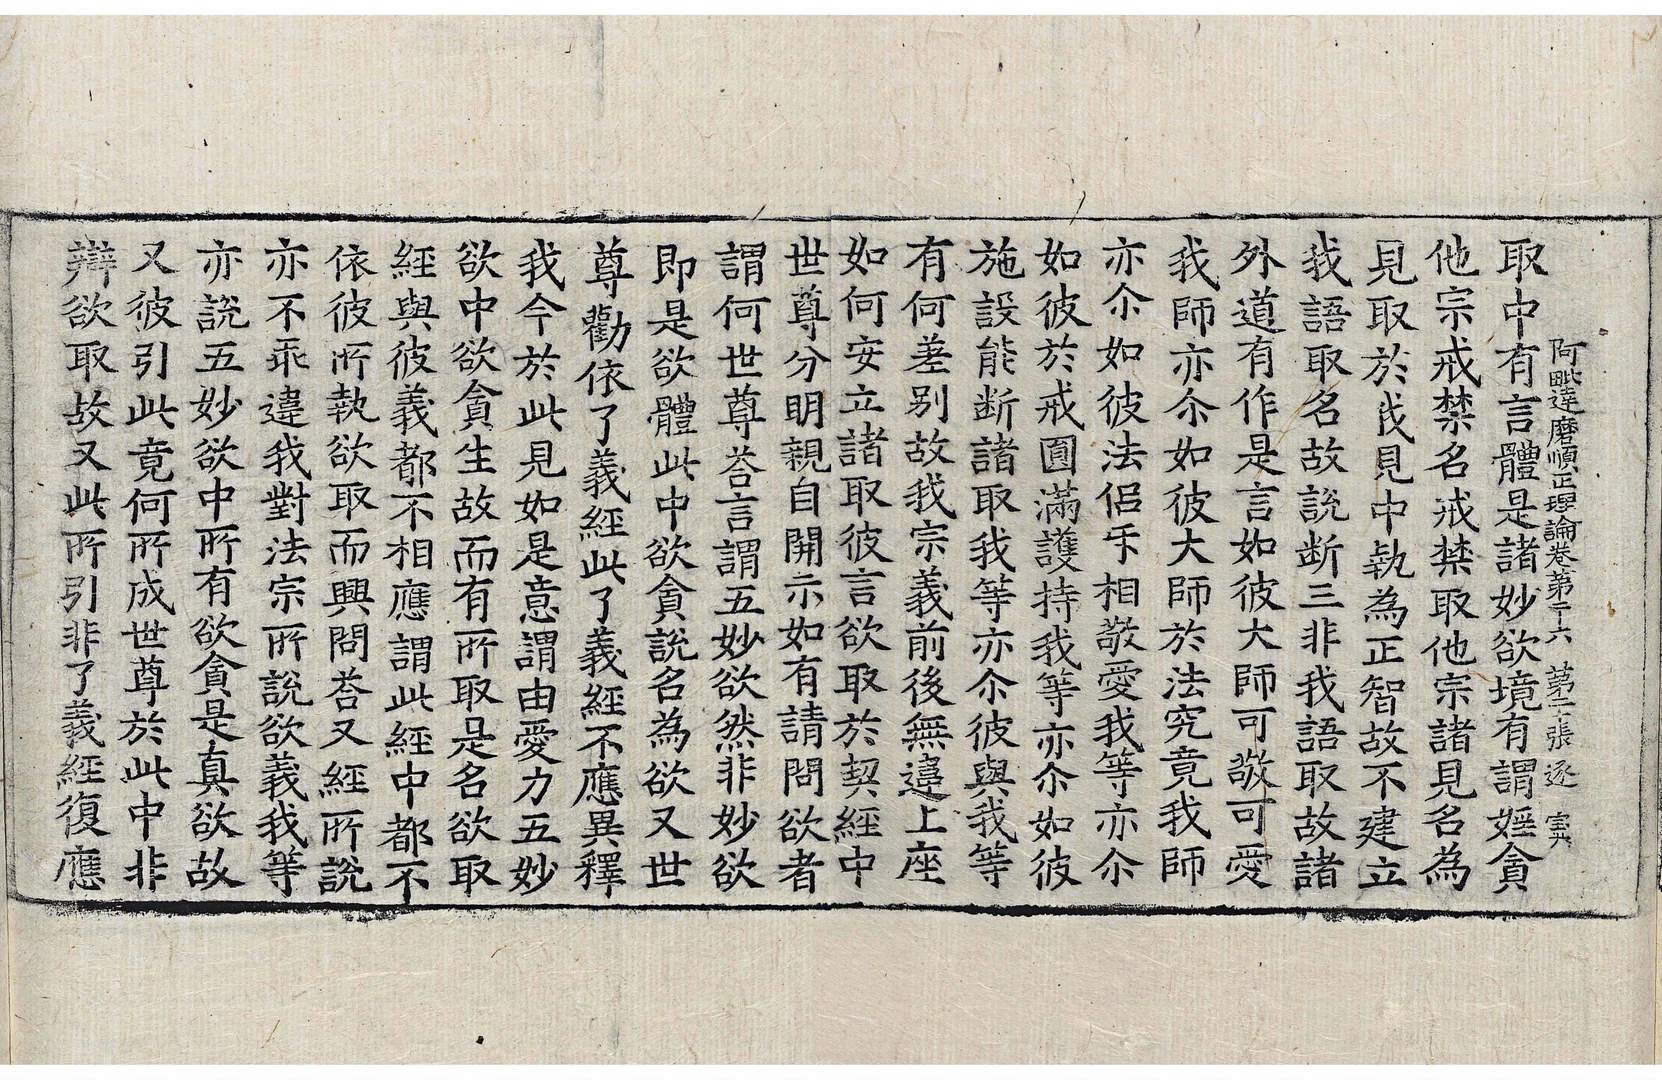 阿毗達磨順正理論卷第二十六 第二十張 逐 寅
取中有言體是諸妙欲境有謂婬貪
他宗戒禁名戒禁取他宗諸見名為
見取於我見中執為正智故不建立
我語取名故說断三非我語取故諸
外道有作是言如彼大師可敬可愛
我師亦尒如彼大師於法究竟我師
亦尒如彼法侣乐相敬愛我等亦尒
如彼於戒圓滿護持我等亦尒如彼
施設能断諸取我等亦尒彼與我等
有何差别故我宗義前後無違上座
如何安立諸取彼言欲取於契經中
世尊分明親自開示如有請問欲者
謂何世尊荅言謂五妙欲然非妙欲
即是欲體此中欲貪說名為欲又世
尊勸依了義經此了義經不應異釋
我今於此見如是意謂由愛力五妙
欲中欲貪生故而有所取是名欲取
經與彼義都不相應謂此經中都不
依彼所執欲取而興問荅又經所說
亦不乖違我對法宗所說欲義我等
亦說五妙欲中所有欲貪是真欲故
又彼引此竟何所成世尊於此中非
辯欲取故又此所引非了義經復應